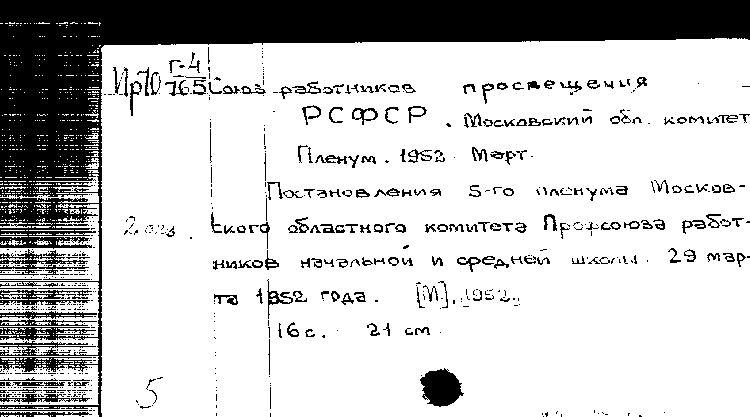 Г-4
Ир70 765 Союз работников просвещения
РСФСР. Московский обл. комитет
Пленум. 1952. Март.
Постановления 5-го пленума Москов-
2 экз. ского областного комитета Профсоюза работ-
ников начальной и средней школы. 29 мар-
та 1952 года. [М], 1952.
16 с. 21 см.
5